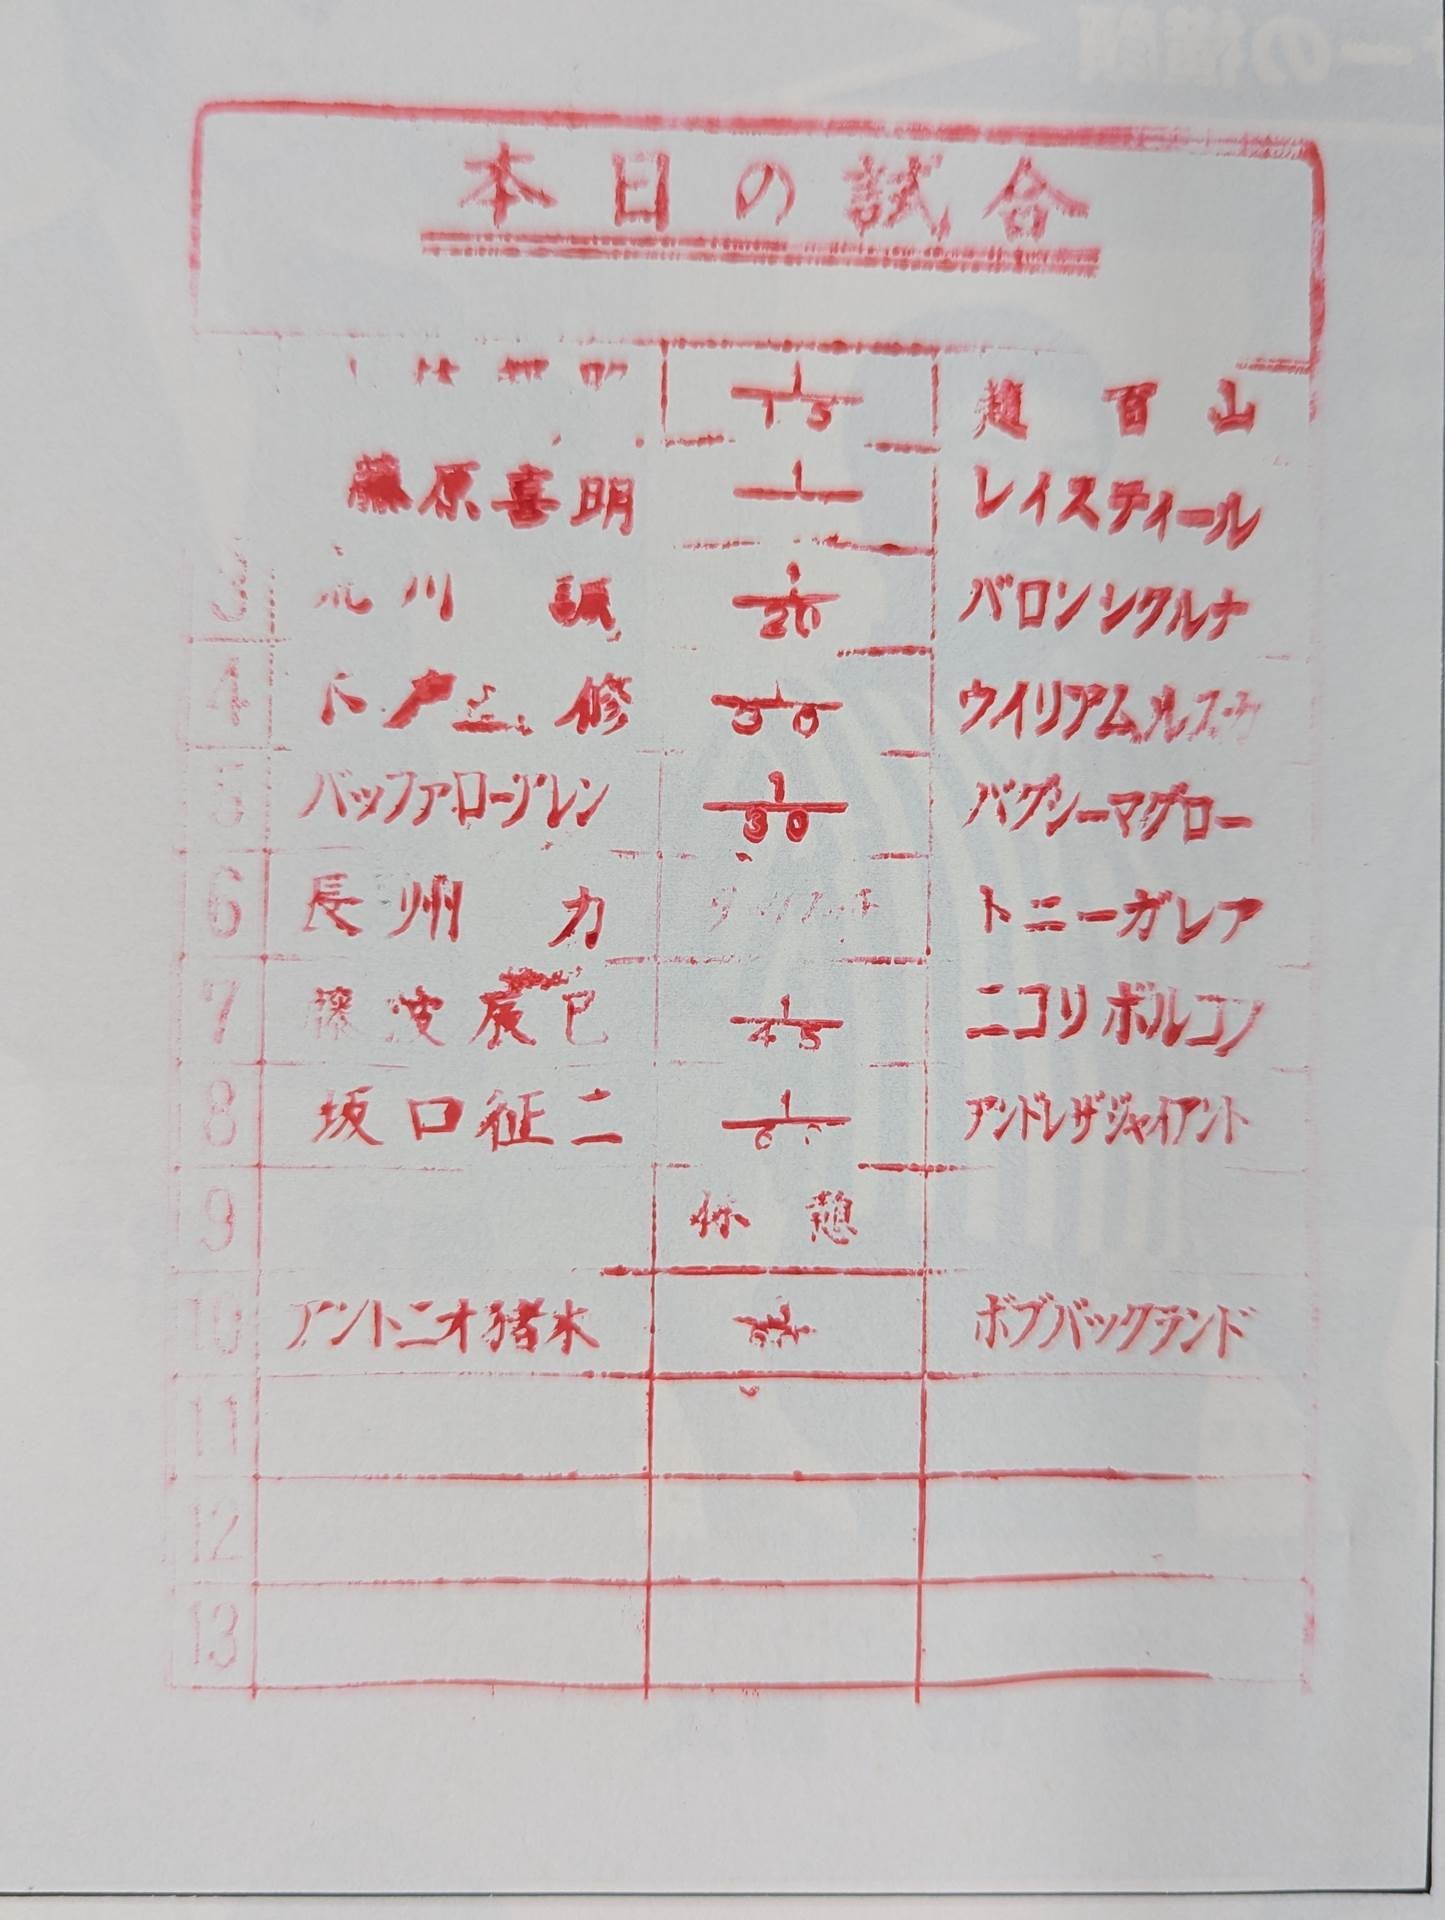 本日の試合
1/15 趙百山
藤原喜明 1/ レイスティール
荒川 誠 1/20 バロンシクルナ
4 木戸 修 1/30 ウイリアムルスカ
5 バッファローアレン 1/30 バグシーマグロー
6 長州 力 トニーガレア
7 藤波辰巳 1/45 ニコリボルコン
8 坂口征二 1/60 アンドレザジャイアント
9 休憩
10 アントニオ猪木 ボブバックランド
11
12
13